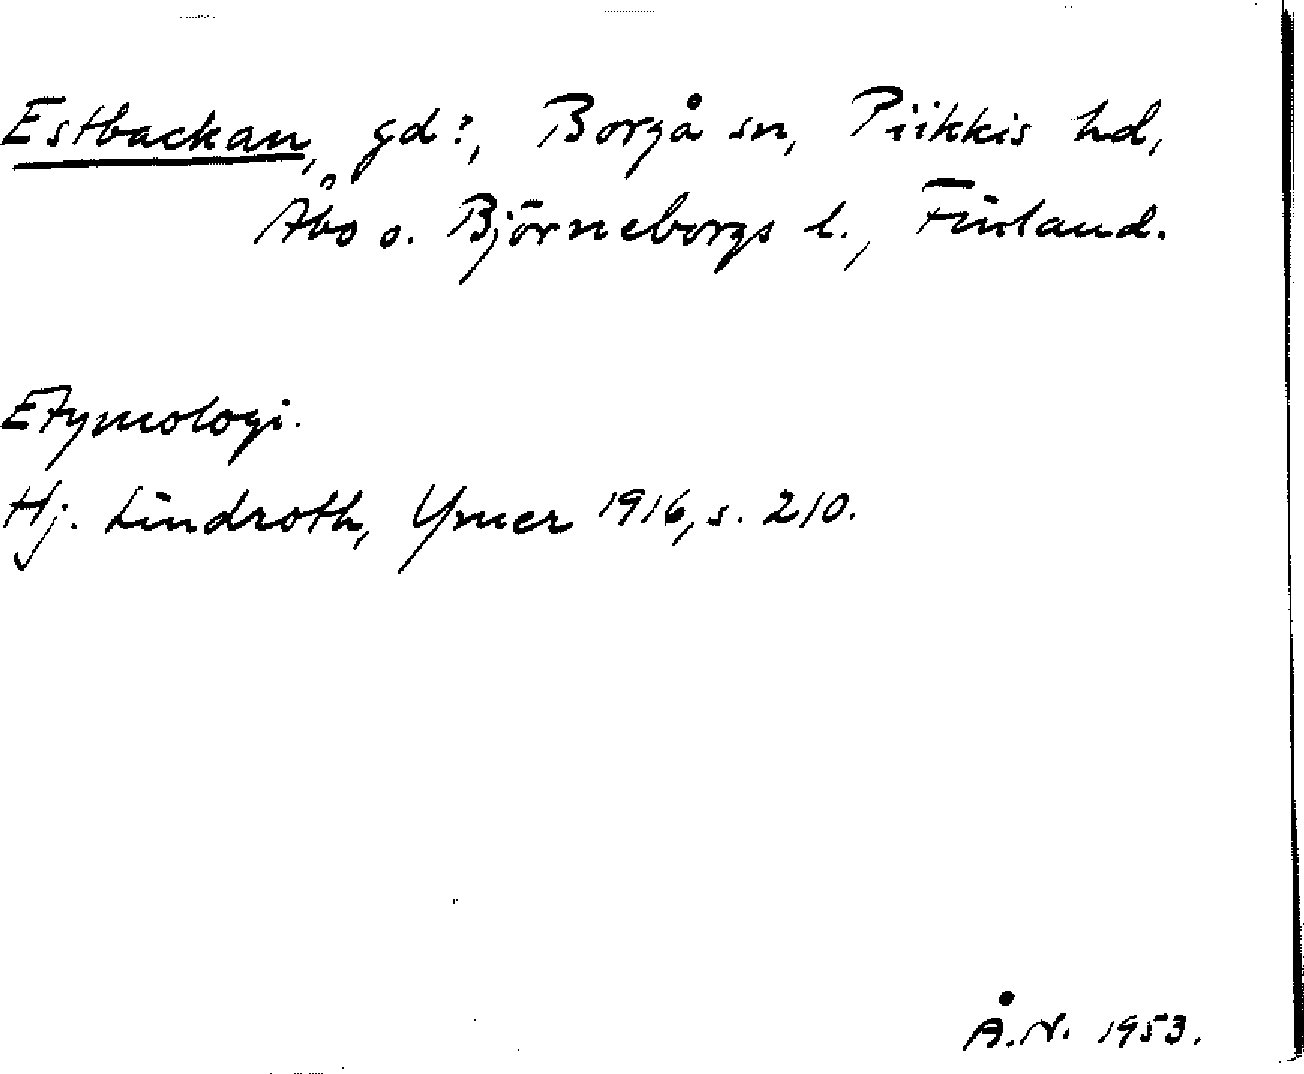 Estbackan, gd?, Borgå sn, Piikkis hd,
Åbo o. Björneborgs l., Finland.
Etymologi.
Hj. Lindroth, Ymer 1916, s. 210.
Å.N. 1953.